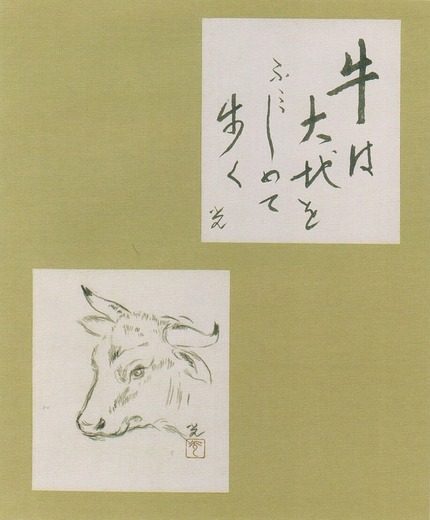 牛は
大地を
ふミしめて
歩く
光
光